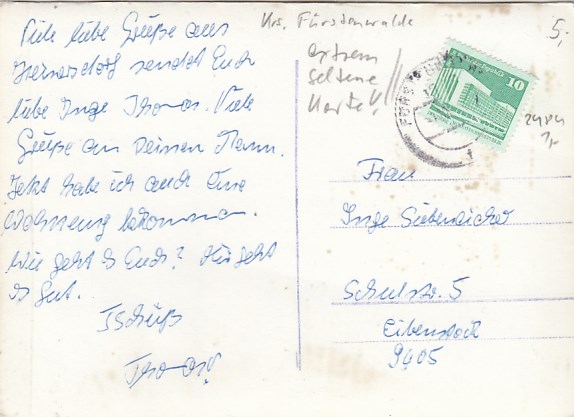 Viele liebe Grüße aus
sendet Euch
liebe Inge Thomas. Viele
Grüße an Deinen Mann.
Jetzt habe ich auch eine
Wohnung bekommen.
Wie geht es Euch? Mir geht
es gut.
Tschüß
Thomas
Krs. Fürstenwalde
extrem
seltene
Karte!
5,-
10
1,-
Frau
Inge
Schulstr. 5
Eibenstock
9405